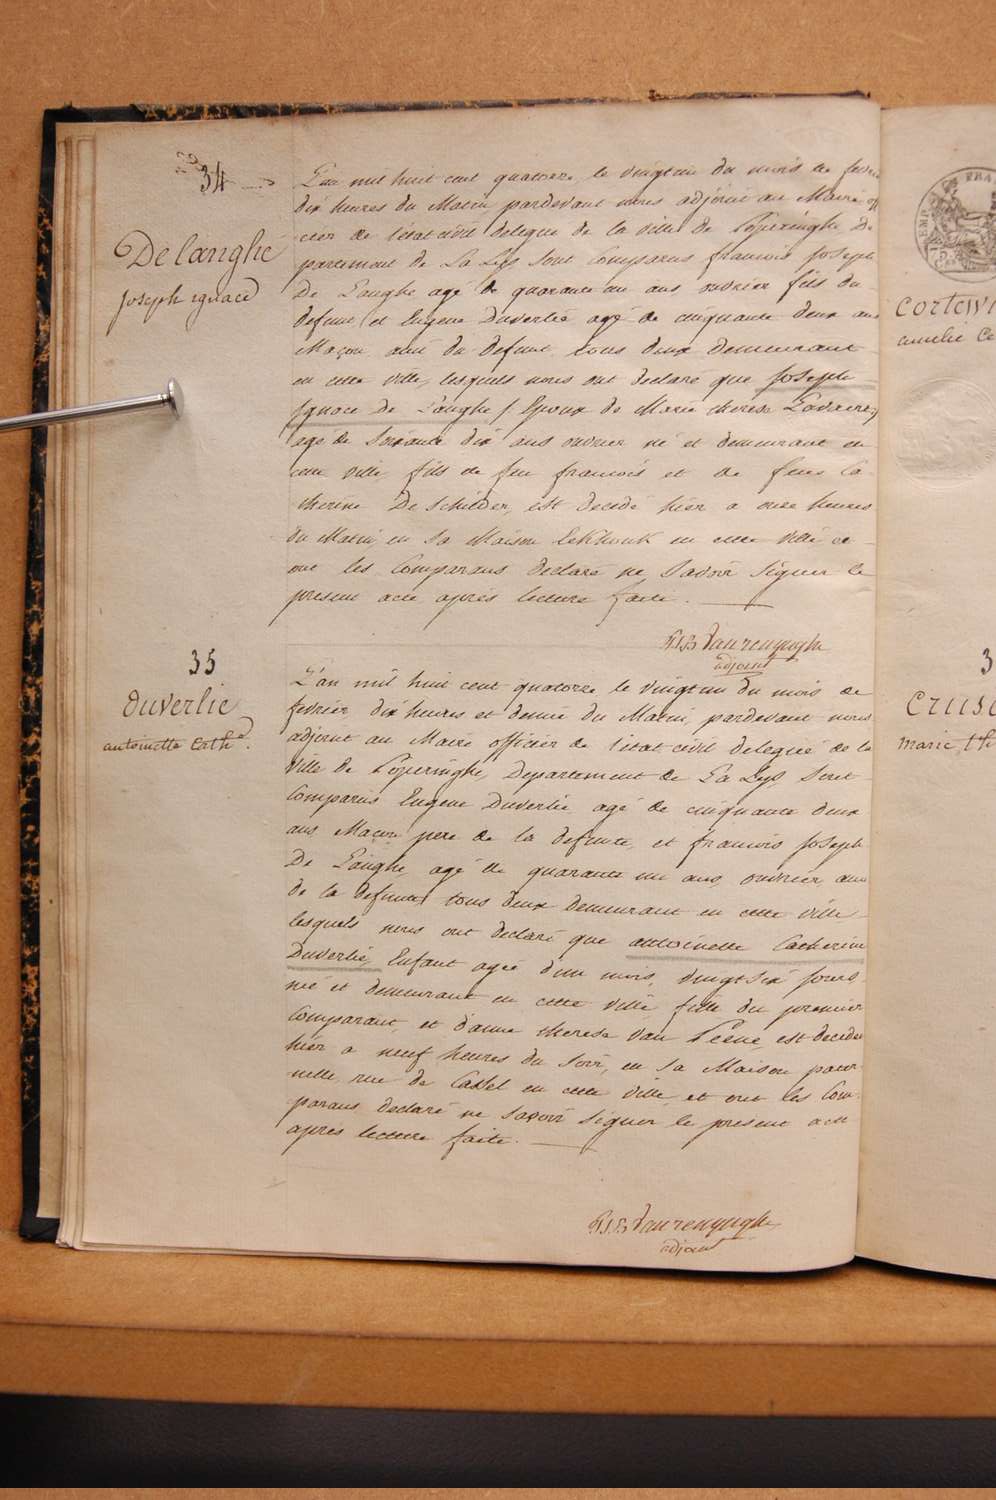 34
De langhe
Joseph ignace
L'an mil huit cent quatorze, le vingtun du mois de fevrier
dix heures du Matin, pardevant nous adjoint au Maire offi
cier de l'etat civil delegué de la ville de Poperinghe De
partement de La Lys Sont Comparus francois Joseph
De Langhe agé de quarante un ans ouvrier fils du
defunt, et Eugene Duverlie agé de cinquante deux ans
Maçon, ami du defunt, tous deux demeurant
en cette ville, lesquels nous ont declaré que Joseph
Ignace De Langhe, Epoux de Marie therese
agé de Soixante dix ans ouvrier né et demeurant en
cette ville fils de feu francois et de feue Ca
therine De Schilder, est decedé hier a onze heures
du Matin, en Sa Maison en cette ville et
ont les Comparans declaré ne Savoir Signer le
present acte après lecture faite.
P.J.B. Vanrenynghe
adjoint
35
Duverlie
antoinette Cathe.
L'an mil huit cent quatorze le vingtun du mois de
fevrier dix heures et demie du Matin, pardevant nous
adjoint au Maire officier de l'etat civil delegué de la
Ville de Poperinghe, Departement de La Lys, Sont
Comparus Eugene Duverlie agé de cinquante deux
ans Maçon pere de la defunte, et francois Joseph
De Langhe, agé de quarante un ans, ouvrier ami
de la defunte, tous deux demeurant en cette ville
lesquels nous ont declaré que antoinette Catherine
Duverlie, Enfant agée d'un mois, vingt Six Jours
née et demeurant en cette ville fille du premier
Comparant, et d'anne therese Van Peene, est decedée
hier a neuf heures du Soir, en Sa Maison pater
nelle, rue de Cassel en cette ville et ont les Com
parans declaré ne Savoir Signer le present acte
après lecture faite.
P.J.B. Vanrenynghe
adjoint